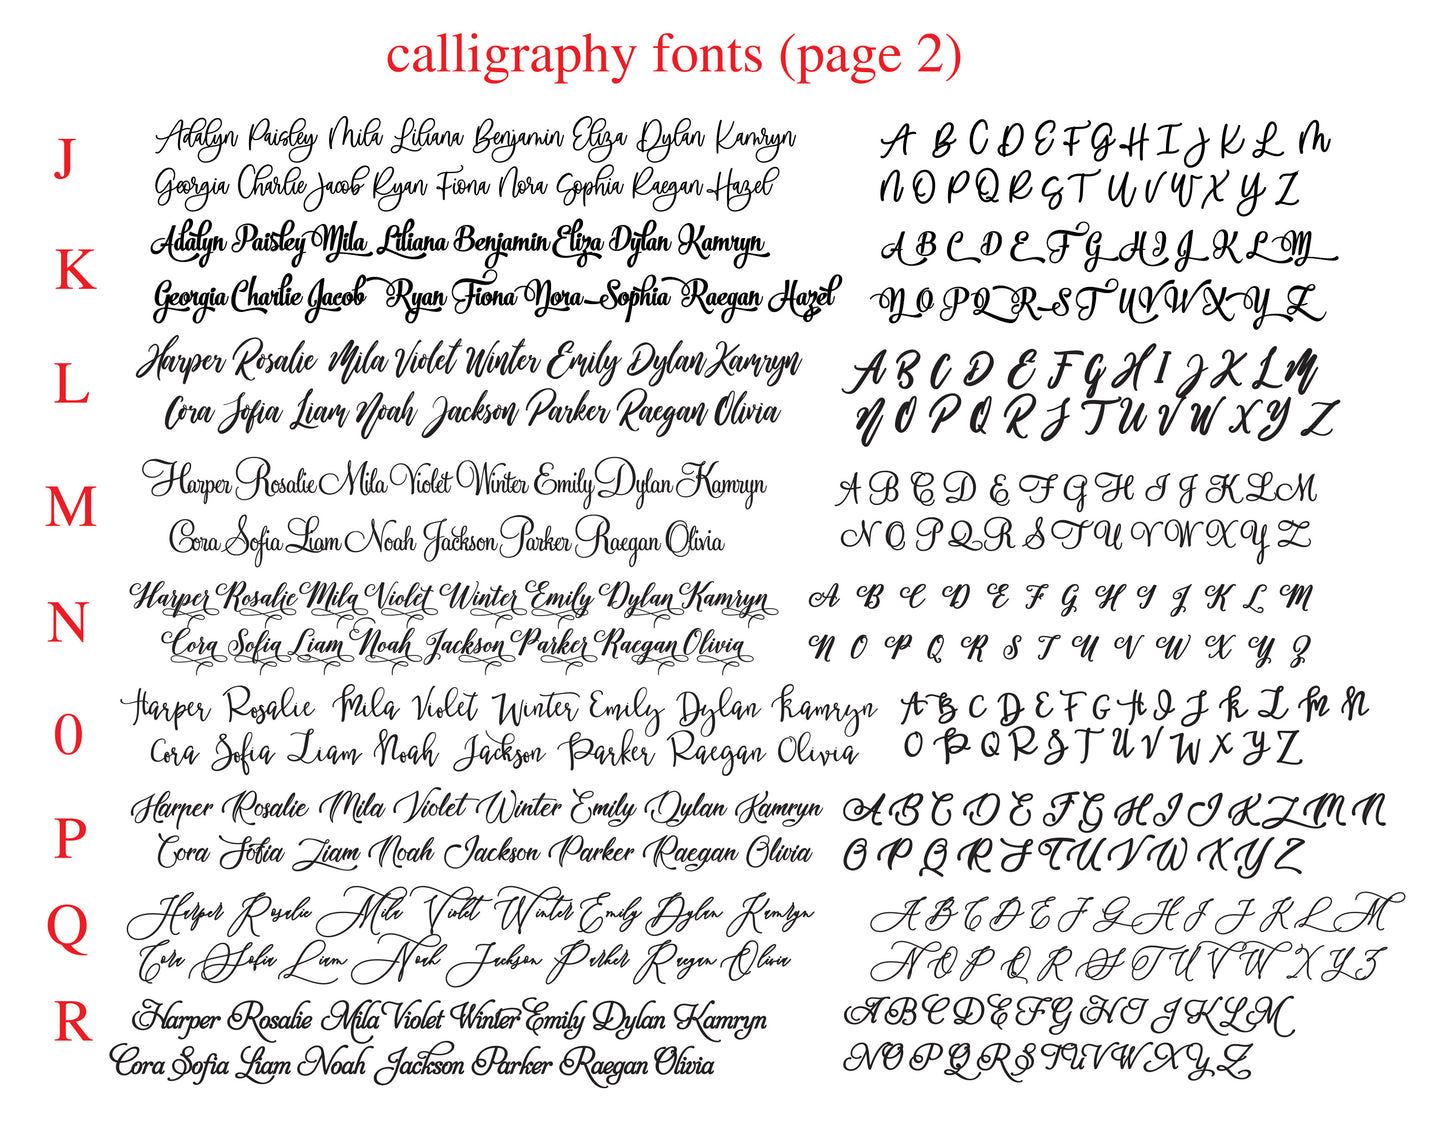 calligraphy fonts (page 2)
J
Adalyn Paisley Mila Liliana Benjamin Eliza Dylan Kamryn
A B C D E F G H I J K L M
Georgia Charlie Jacob Ryan Fiona Nora Sophia Raegan Hazel
N O P Q R S T U V W X Y Z
K
Adalyn Paisley Mila Liliana Benjamin Eliza Dylan Kamryn
A B C D E F G H I J K L M
Georgia Charlie Jacob Ryan Fiona Nora Sophia Raegan Hazel
N O P Q R S T U V W X Y Z
L
Harper Rosalie Mila Violet Winter Emily Dylan Kamryn
A B C D E F G H I J K L M
Cora Sofia Liam Noah Jackson Parker Raegan Olivia
N O P Q R S T U V W X Y Z
M
Harper Rosalie Mila Violet Winter Emily Dylan Kamryn
A B C D E F G H I J K L M
Cora Sofia Liam Noah Jackson Parker Raegan Olivia
N O P Q R S T U V W X Y Z
N
Harper Rosalie Mila Violet Winter Emily Dylan Kamryn
A B C D E F G H I J K L M
Cora Sofia Liam Noah Jackson Parker Raegan Olivia
N O P Q R S T U V W X Y Z
0
Harper Rosalie Mila Violet Winter Emily Dylan Kamryn
A B C D E F G H I J K L M N
Cora Sofia Liam Noah Jackson Parker Raegan Olivia
O P Q R S T U V W X Y Z
P
Harper Rosalie Mila Violet Winter Emily Dylan Kamryn
A B C D E F G H I J K L M N
Cora Sofia Liam Noah Jackson Parker Raegan Olivia
O P Q R S T U V W X Y Z
Q
Harper Rosalie Mila Violet Winter Emily Dylan Kamryn
A B C D E F G H I J K L M
Cora Sofia Liam Noah Jackson Parker Raegan Olivia
N O P Q R S T U V W X Y Z
R
Harper Rosalie Mila Violet Winter Emily Dylan Kamryn
A B C D E F G H I J K L M
Cora Sofia Liam Noah Jackson Parker Raegan Olivia
N O P Q R S T U V W X Y Z